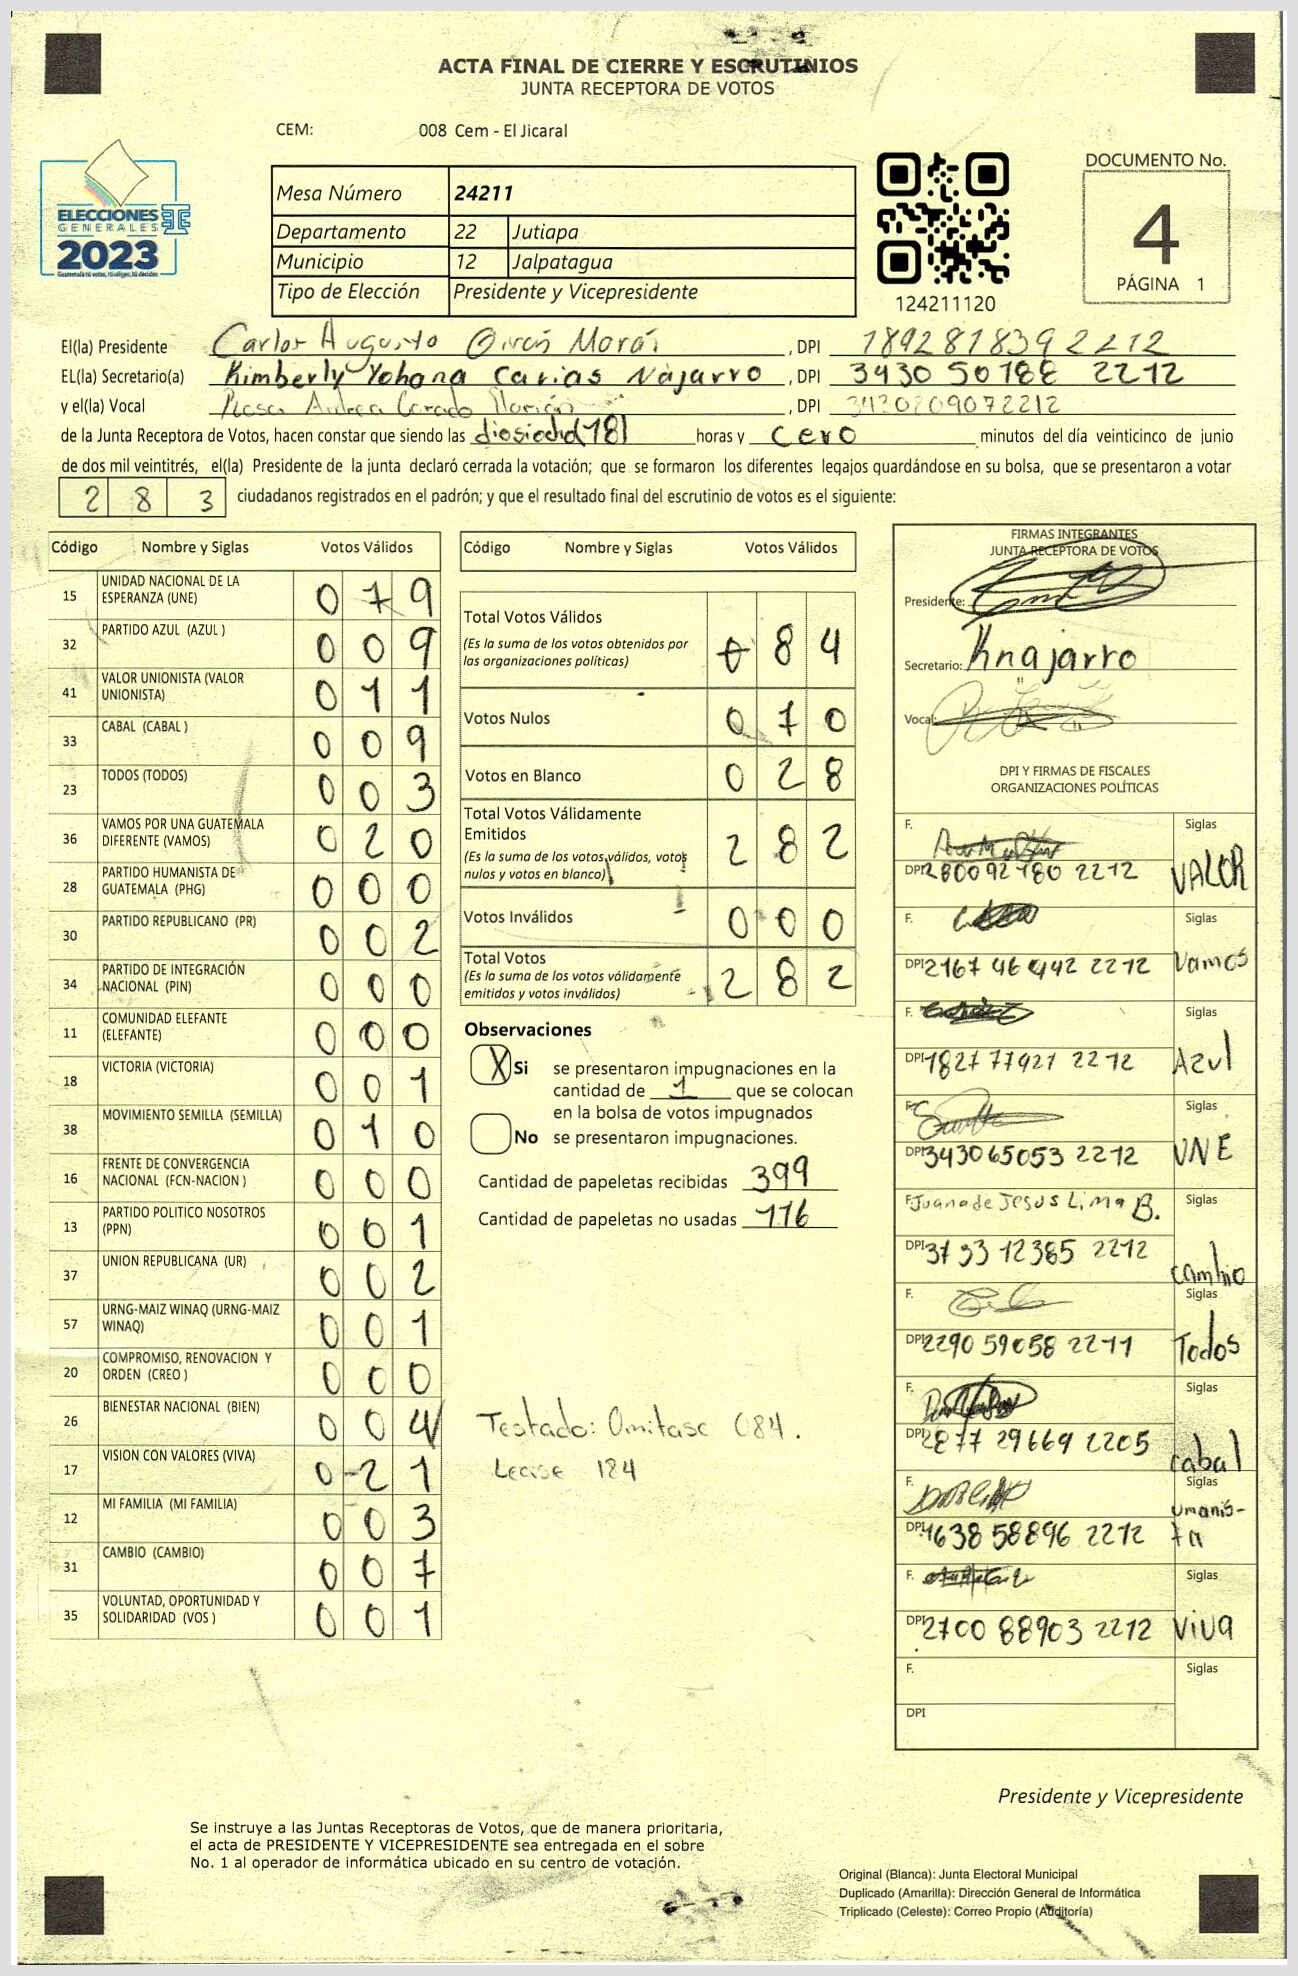 ACTA FINAL DE CIERRE Y ESCRUTINIOS
JUNTA RECEPTORA DE VOTOS
CEM: 008 Cem - El Jicaral
ELECCIONES
GENERALES
2023
Mesa Número 24211
Departamento 22 Jutiapa
Municipio 12 Jalpatagua
Tipo de Elección Presidente y Vicepresidente
124211120
DOCUMENTO No.
4
PÁGINA 1
El(la) Presidente Carlos Augusto Morán , DPI 1892818392212
EL(la) Secretario(a) Kimberly Yohana Carias Najarro , DPI 3430 50788 2212
y el(la) Vocal Rosa Andrea , DPI 3430209072212
de la Junta Receptora de Votos, hacen constar que siendo las (18) horas y cero minutos del día veinticinco de junio
de dos mil veintitrés, el(la) Presidente de la junta declaró cerrada la votación; que se formaron los diferentes legajos guardándose en su bolsa, que se presentaron a votar
2 8 3 ciudadanos registrados en el padrón; y que el resultado final del escrutinio de votos es el siguiente:
Código Nombre y Siglas Votos Válidos
15 UNIDAD NACIONAL DE LA ESPERANZA (UNE) 0 7 9
32 PARTIDO AZUL (AZUL ) 0 0 9
41 VALOR UNIONISTA (VALOR UNIONISTA) 0 1 1
33 CABAL (CABAL ) 0 0 9
23 TODOS (TODOS) 0 0 3
36 VAMOS POR UNA GUATEMALA DIFERENTE (VAMOS) 0 2 0
28 PARTIDO HUMANISTA DE GUATEMALA (PHG) 0 0 0
30 PARTIDO REPUBLICANO (PR) 0 0 2
34 PARTIDO DE INTEGRACIÓN NACIONAL (PIN) 0 0 0
11 COMUNIDAD ELEFANTE (ELEFANTE) 0 0 0
18 VICTORIA (VICTORIA) 0 0 1
38 MOVIMIENTO SEMILLA (SEMILLA) 0 1 0
16 FRENTE DE CONVERGENCIA NACIONAL (FCN-NACION ) 0 0 0
13 PARTIDO POLITICO NOSOTROS (PPN) 0 0 1
37 UNION REPUBLICANA (UR) 0 0 2
57 URNG-MAIZ WINAQ (URNG-MAIZ WINAQ) 0 0 1
20 COMPROMISO, RENOVACION Y ORDEN (CREO ) 0 0 0
26 BIENESTAR NACIONAL (BIEN) 0 0 4
17 VISION CON VALORES (VIVA) 0 2 1
12 MI FAMILIA (MI FAMILIA) 0 0 3
31 CAMBIO (CAMBIO) 0 0 7
35 VOLUNTAD, OPORTUNIDAD Y SOLIDARIDAD (VOS ) 0 0 1
Código Nombre y Siglas Votos Válidos
Total Votos Válidos 0 8 4
(Es la suma de los votos obtenidos por
las organizaciones políticas)
Votos Nulos 0 7 0
Votos en Blanco 0 2 8
Total Votos Válidamente
Emitidos 2 8 2
(Es la suma de los votos válidos, votos
nulos y votos en blanco)
Votos Inválidos 0 0 0
Total Votos 2 8 2
(Es la suma de los votos válidamente
emitidos y votos inválidos)
Observaciones
X Si se presentaron impugnaciones en la
cantidad de 1 que se colocan
en la bolsa de votos impugnados
No se presentaron impugnaciones.
Cantidad de papeletas recibidas 399
Cantidad de papeletas no usadas 116
Testado: Omitase 084.
Lease 184
FIRMAS INTEGRANTES
JUNTA RECEPTORA DE VOTOS
Presidente:
Secretario: Knajarro
Vocal:
DPI Y FIRMAS DE FISCALES
ORGANIZACIONES POLÍTICAS
F. Siglas
DPI 280092780 2212 VALOR
F. Siglas
DPI 2167 46442 2212 Vamos
F. Siglas
DPI 1827 77921 2212 Azul
F. Siglas
DPI 343065053 2212 UNE
F. Juana de Jesus Lima B. Siglas
DPI 3793 12385 2212 cambio
F. Siglas
DPI 2290 59058 2211 Todos
F. Siglas
DPI 2877 29669 2205 cabal
F. Siglas
DPI 1638 58896 2212 umanis-
ta
F. Siglas
DPI 2700 88903 2212 Viva
F. Siglas
DPI
Presidente y Vicepresidente
Se instruye a las Juntas Receptoras de Votos, que de manera prioritaria,
el acta de PRESIDENTE Y VICEPRESIDENTE sea entregada en el sobre
No. 1 al operador de informática ubicado en su centro de votación.
Original (Blanca): Junta Electoral Municipal
Duplicado (Amarilla): Dirección General de Informática
Triplicado (Celeste): Correo Propio (Auditoría)